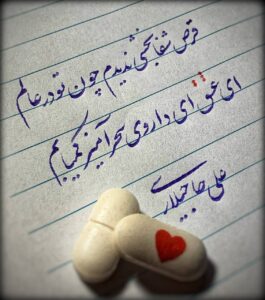 قرص شفابخشی ندیدم چون تو در عالم
ای عشق ای داروی سحرآمیز کیمیایم
علی حاجیلاری